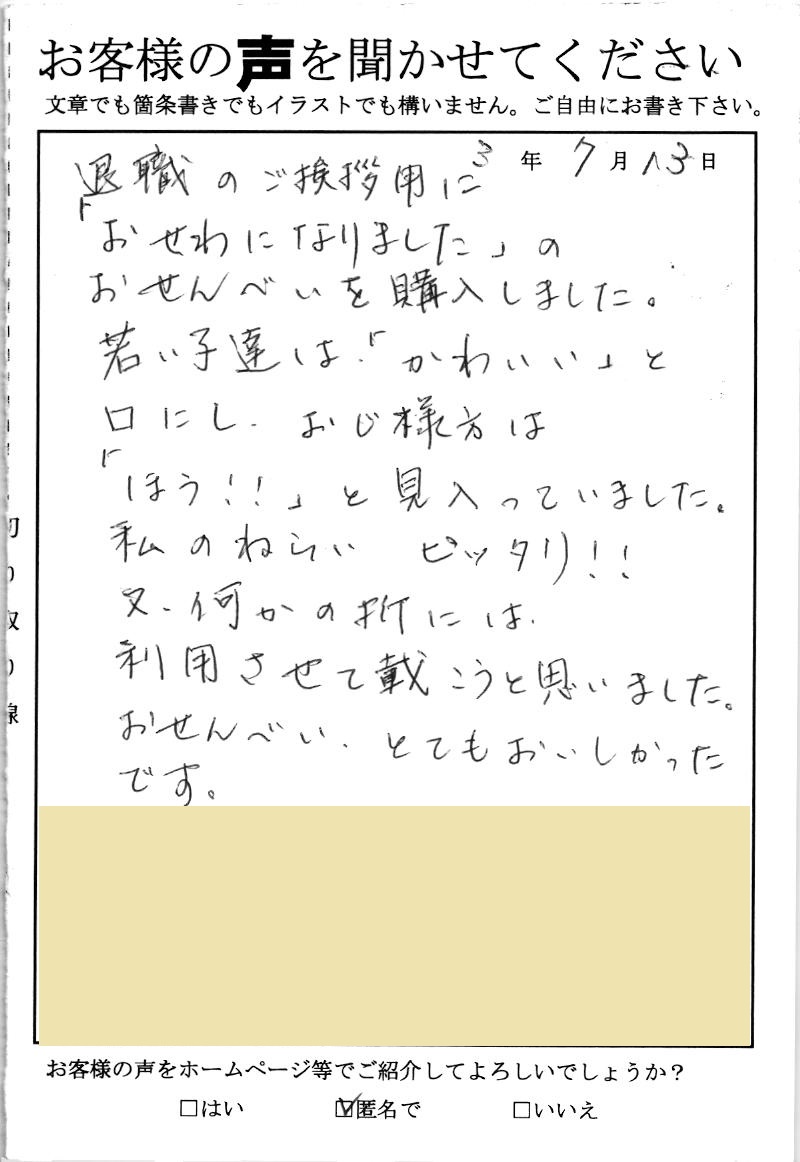 お客様の声を聞かせてください
文章でも箇条書きでもイラストでも構いません。ご自由にお書き下さい。
3年 7月13日
退職のご挨拶用に
「おせわになりました」の
おせんべいを購入しました。
若い子達は、「かわいい」と
口にし、おじ様方は
「ほう!!」と見入っていました。
私のねらい ピッタリ!!
又、何かの折には、
利用させて戴こうと思いました。
おせんべい、とてもおいしかった
です。
切り取り線
お客様の声をホームページ等でご紹介してよろしいでしょうか？
□はい ☑匿名で □いいえ